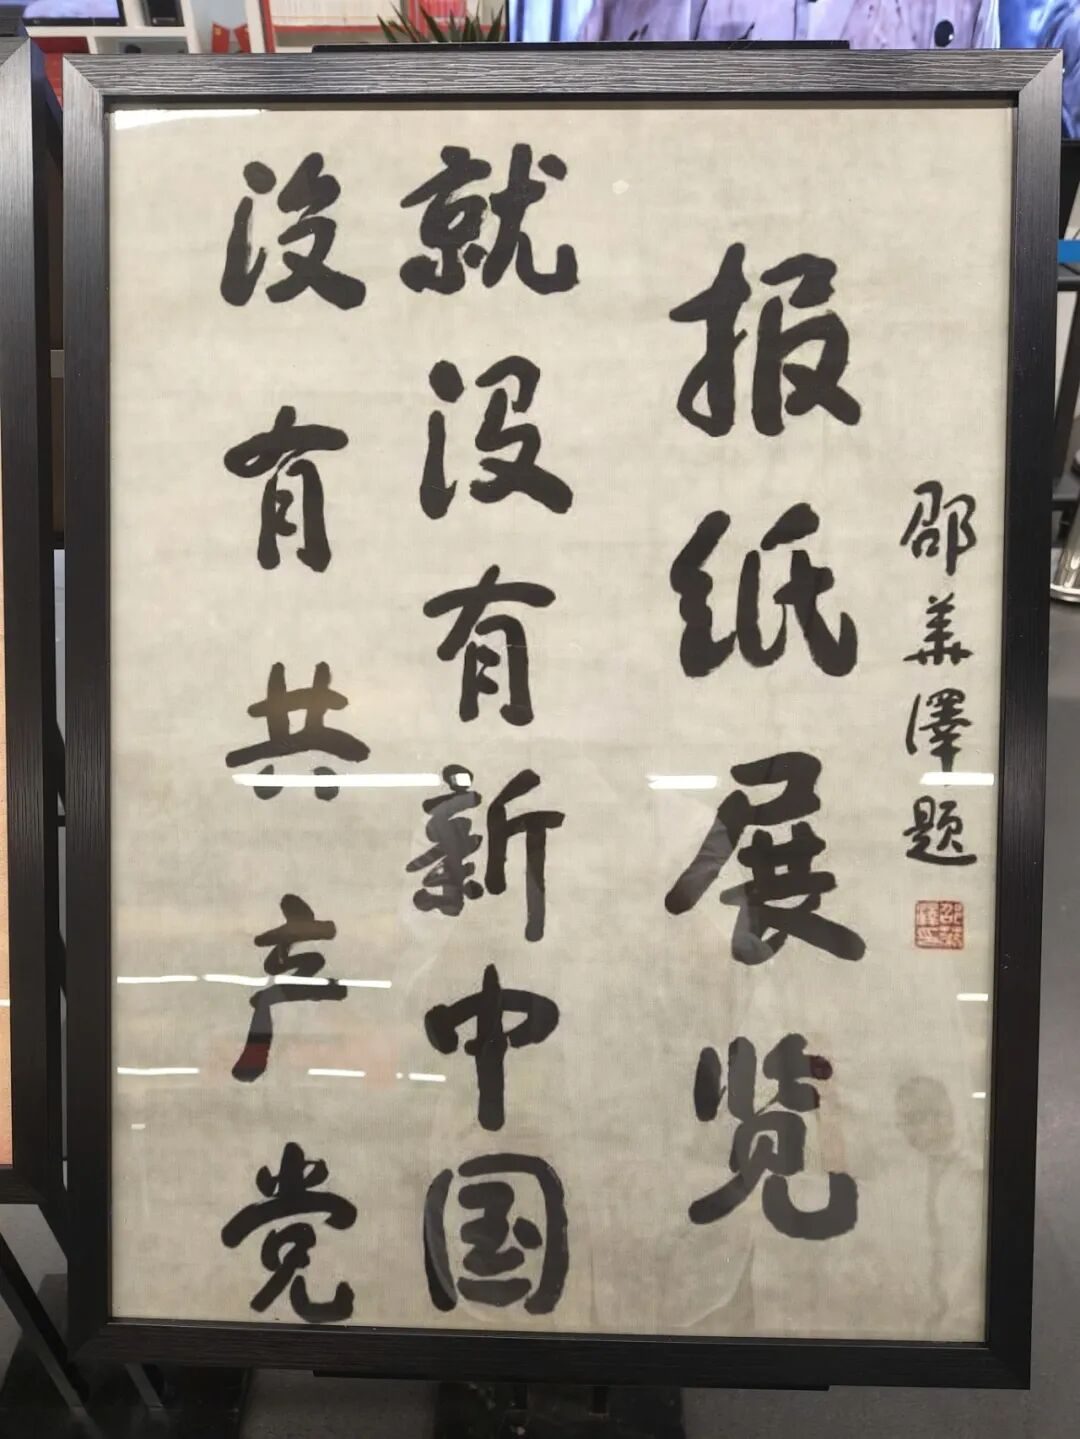 没有共产党
就没有新中国
报纸展览
邵華澤题